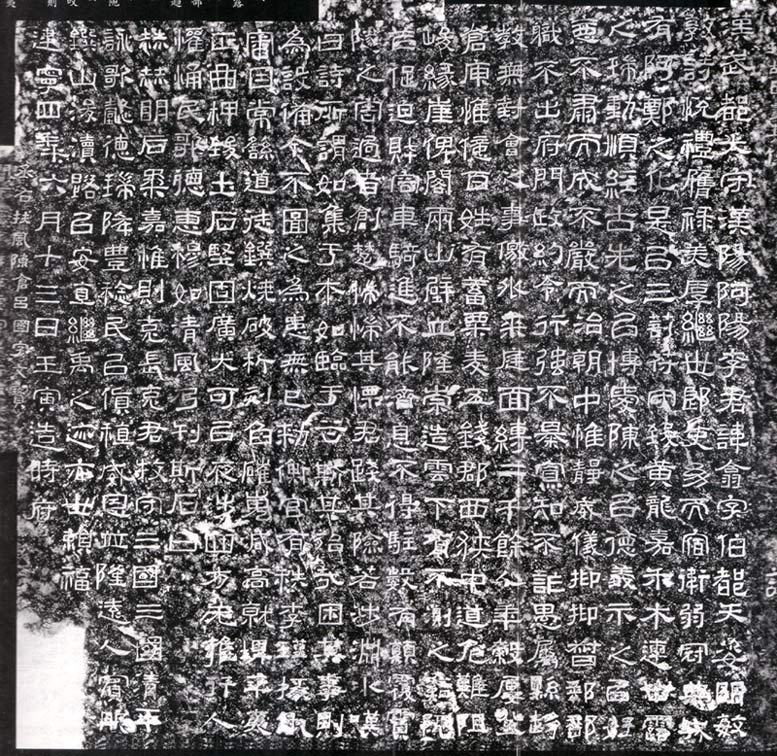 漢武都太守漢陽阿陽李君諱翕字伯都天姿明敏
敦詩悅禮膺祿美厚繼世郎吏幼而宿衛弱冠典城
有阿鄭之化是以三剖符守致黃龍嘉禾木連甘露
之瑞動順經古先之以博愛陳之以德義示之以好
惡不肅而成不嚴而治朝中惟靜威儀抑抑督郵部
職不出府門政約令行強不暴寡知不詐愚屬縣趍
教無對會之事儌外來庭面縛二千餘人年穀屢登
倉庾惟億百姓有蓄粟麥五錢郡西狹中道危難阻
峻緣崖俾閣兩山壁立隆崇造雲下有不測之谿阨
芒促迫財容車騎進不能濟息不得駐數有顛覆霣
隧之害過者創楚惴惴其慄君踐其險若涉淵冰嘆
曰詩所謂如集于木如臨于谷斯其殆哉困其事則
為設備今不圖之為患無已敕衡官有秩李瑾掾仇
審因常繇道徒鐉燒破析刻臽確嵬減高就埤平夷
正曲柙致土石堅固廣大可以夜涉四方无雍行人
懽悀民歌德惠穆如清風乃刊斯石曰
赫赫明后柔嘉惟則克長克君牧守三國三國清平
詠歌懿德瑞降豐稔民以貨稙威恩並隆遠人賓服
鐉山浚瀆路以安直繼禹之迹亦世賴福
建寧四年六月十三日壬寅造時府
丞右扶風陳倉呂國字文寶